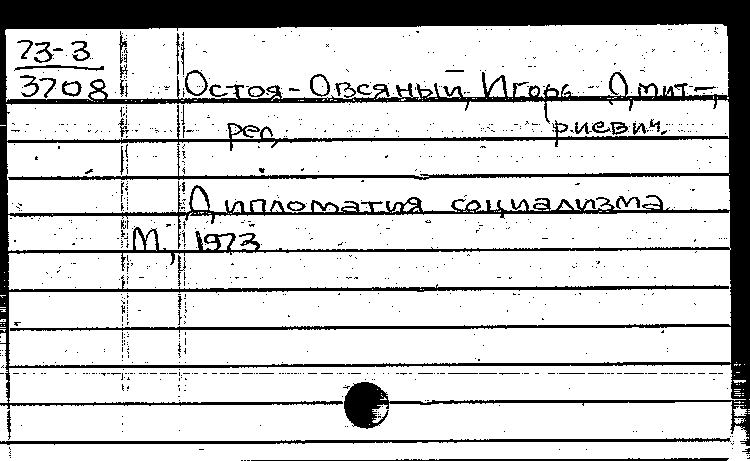 73-3
3708
Остоя-Овсяный, Игорь Дмит-
ред. риевич.
Дипломатия социализма
М., 1973